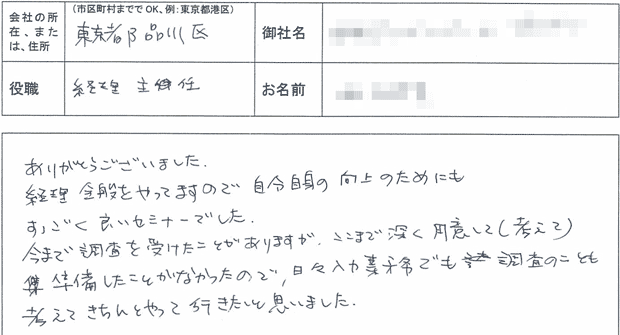 会社の所在、または、住所
(市区町村まででOK、例:東京都港区)
東京都品川区
御社名
役職
経理 主任
お名前
ありがとうございました.
経理全般をやってますので 自分自身の向上のためにも
すっごく良いセミナーでした.
今まで調査を受けたことがありますが、ここまで深く用意して(考えて)
準備したことがなかったので、日々入力業務でも 調査のことも
考えてきちんとやって行きたいと思いました.